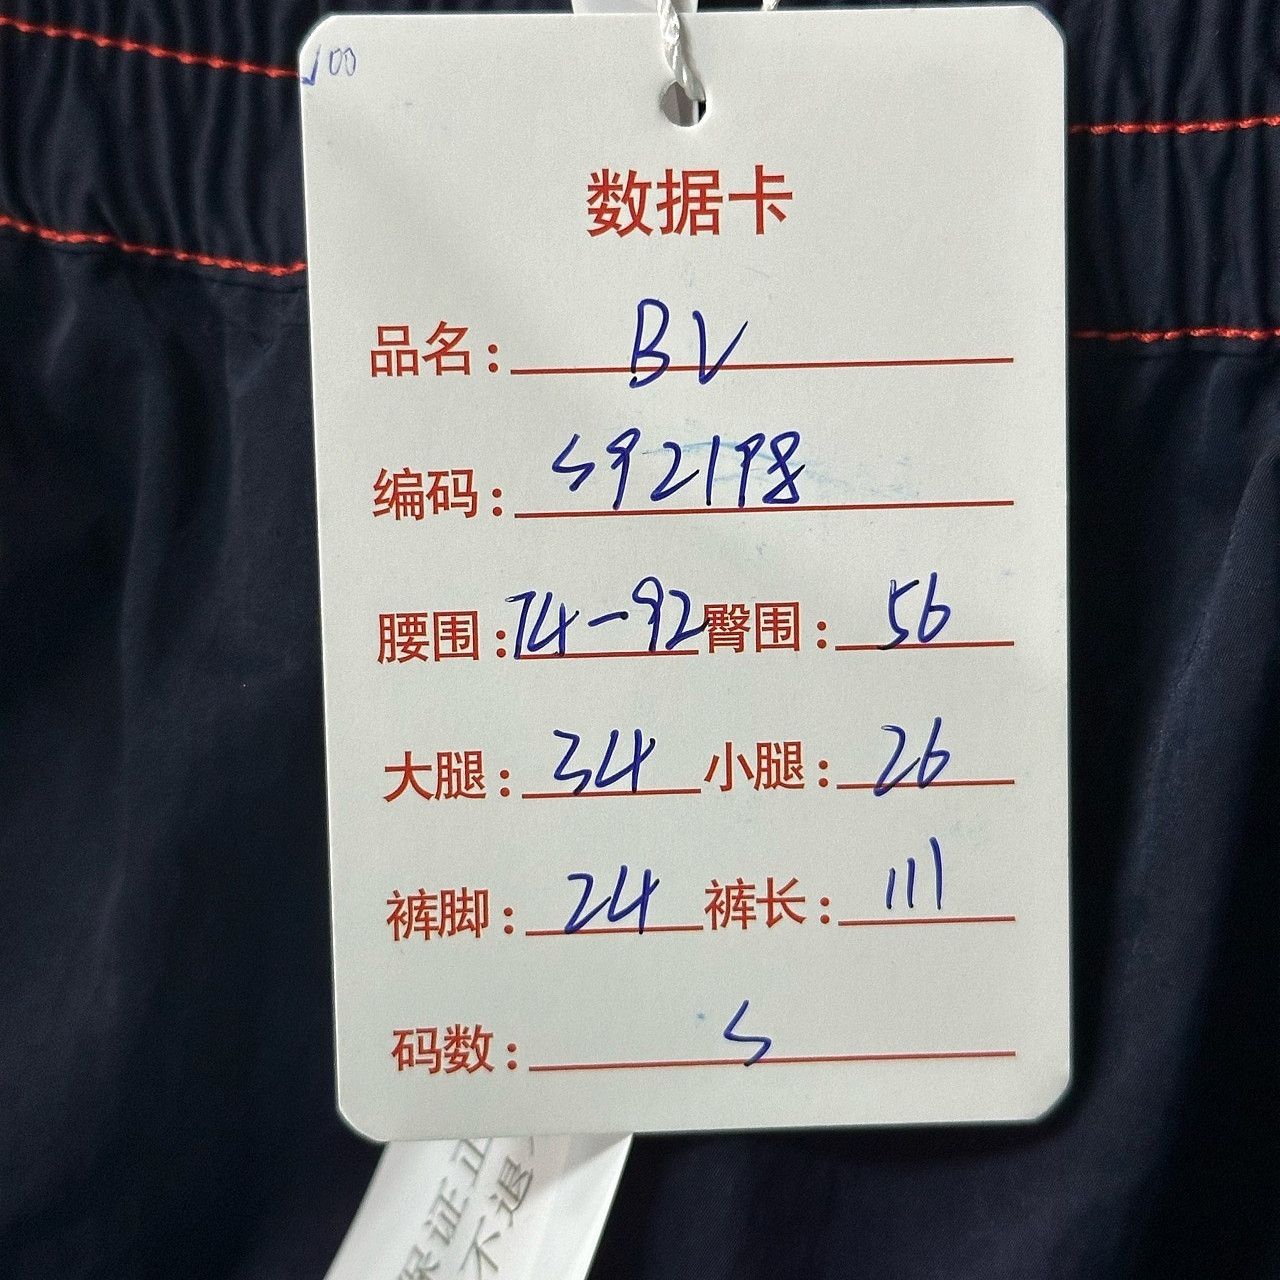 100
数据卡
品名: BV
编码: S92198
腰围: 74-92 臀围: 56
大腿: 34 小腿: 26
裤脚: 24 裤长: 111
码数: S
保证正
不退